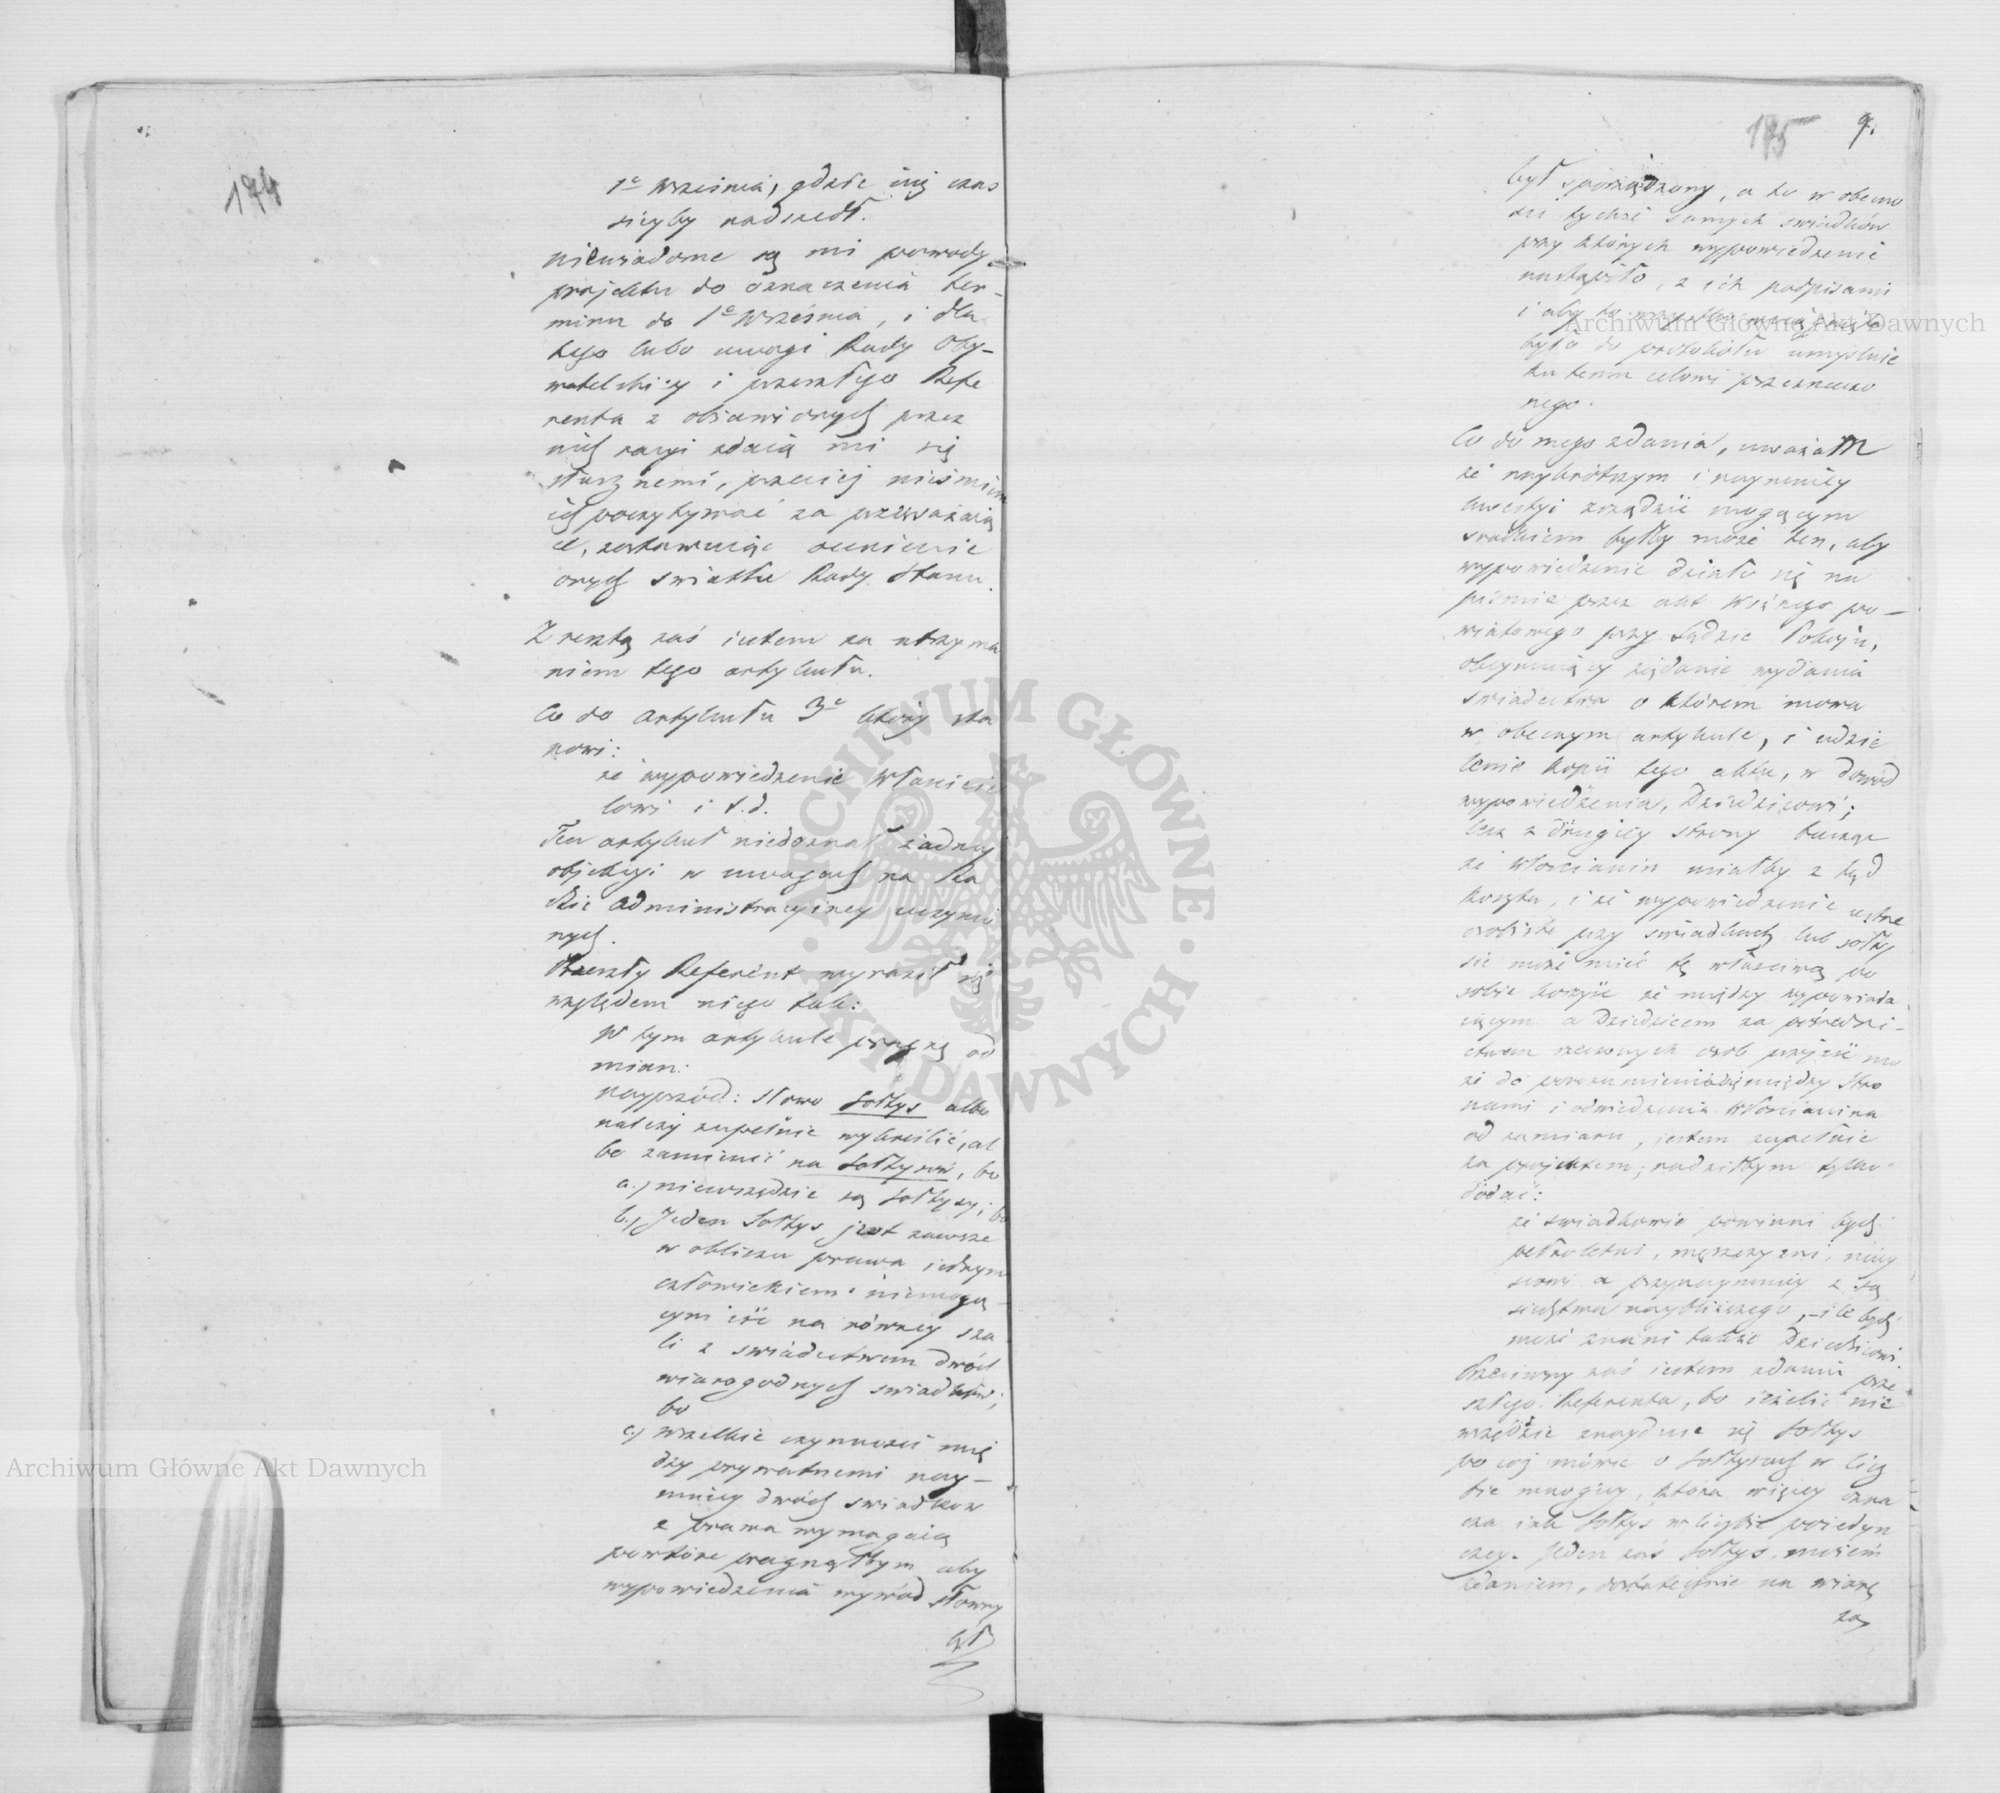 174
1º września, gdzie iuż czas
sieyby nadszedł.
niewiadome są mi powody
projektu do oznaczenia ter-
minu do 1º Września, i dla
tego lubo uwagi Rady Oby-
watelskiey i przeszłego Refe
renta z obiawionych przez
nich racyi zdaią mi się
słusznemi, przeciéż nieśmiem
ich poczytywać za przeważaią
ce, zostawuiąc ocenienie
onych swiatłu Rady Stanu.
Zresztą zaś iestem za utrzyma
niem tego artykułu.
Co do artykułu 3º który sta
nowi:
że wypowiedzenie Właścicie
lowi i t.d.
Ten artykuł niedoznał żadney
objekcyi w uwagach na Ra
dzie administracyiney uczynio
nych.
Przeszły Referent wyraził się
względem niego tak:
W tym artykule pragnę od
mian:
nayprzód: słowo Sołtys albo
należy zupełnie wykreślić, al
bo zamienić na Sołtysów, bo
a.) niewszędzie są Sołtysy; bo
b.) Jeden Sołtys jest zawsze
w obliczu prawa iednym
człowiekiem i niemogą
cym iść na równey sza
li z swiadectwem dwóch
wiarogodnych swiadków;
bo
c.) wszelkie czynności mię
dzy prywatnemi nay-
mniey dwóch swiadkow
z prawa wymagaią
powtóre pragnąłbym aby
wypowiedzenia wywód słowny
był
175
9.
był sporządzony, a to w obecno
ści tychże samych swiadków
przy których wypowiedzenie
nastąpiło, z ich podpisami
i aby to wszystko
było do protokółu umyślnie
ku temu celowi przeznaczo
nego.
Co do mego zdania, uważam
że naykrótszym i naymniey
kwestyi zrządzić mogącym
srodkiem byłby może ten, aby
wypowiedzenie działo się na
pismie przez akt Woźnego po-
wiatowego przy Sądzie Pokoju,
obeymuiący żądanie wydania
swiadectwa o którem mowa
w obecnym artykule, i udzie
lenie kopii tego aktu, w dowód
wypowiedzenia, Dziedzicowi;
lecz z drugiey strony bacząc
że Włoscianin miałby z tąd
koszta, i że wypowiedzenie ustne
osobiste przy swiadkach lub sołty
sie może mieć tę właściwą po
sobie korzyść że między wypowiada
iącym a Dziedzicem za pośredni-
ctwem rzeczonych osob przyiść mo
że do porozumienia się między Stro
nami i odwiedzenia Włoscianina
od zamiaru, iestem zupełnie
za projektem; radziłbym tylko
dodać:
że swiadkowie powinni bydź
pełnoletni, męszczyzni, miey
scowi a przynaymniey z są
siedztwa naybliższego, - ile bydź
może znani także Dziedzicowi.
Przeciwny zaś iestem zdaniu prze
szłego Referenta, bo ieżeli nie
wszędzie znayduie się Sołtys
po cóż mówić o Sołtysach w licz
bie mnogiey, która więcey ozna
cza iak Sołtys w liczbie poiedyn
czey. Jeden zaś Sołtys, moiém
zdaniem, dostatecznie na wiarę
za